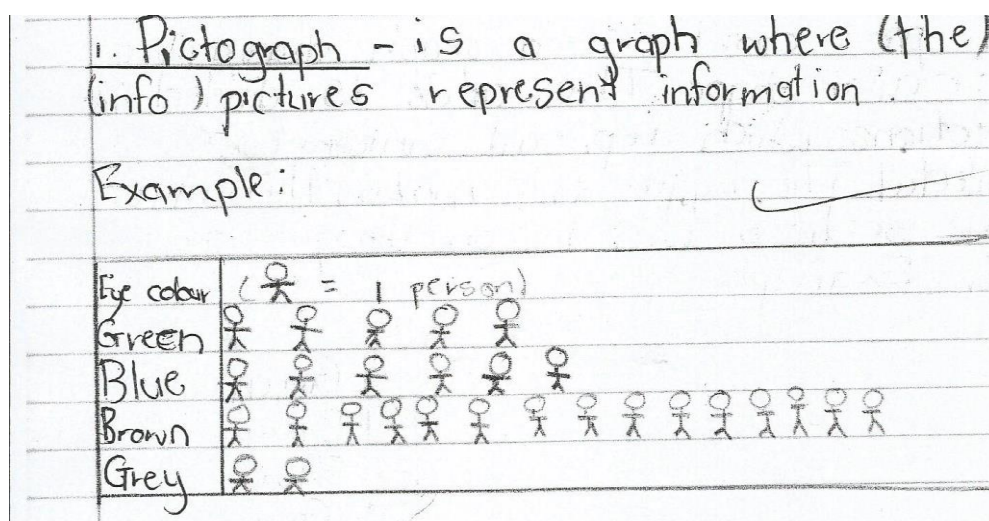 1. Pictograph - is a graph where (the)
(info) pictures represent information.
Example:
Eye colour (= 1 person)
Green
Blue
Brown
Grey